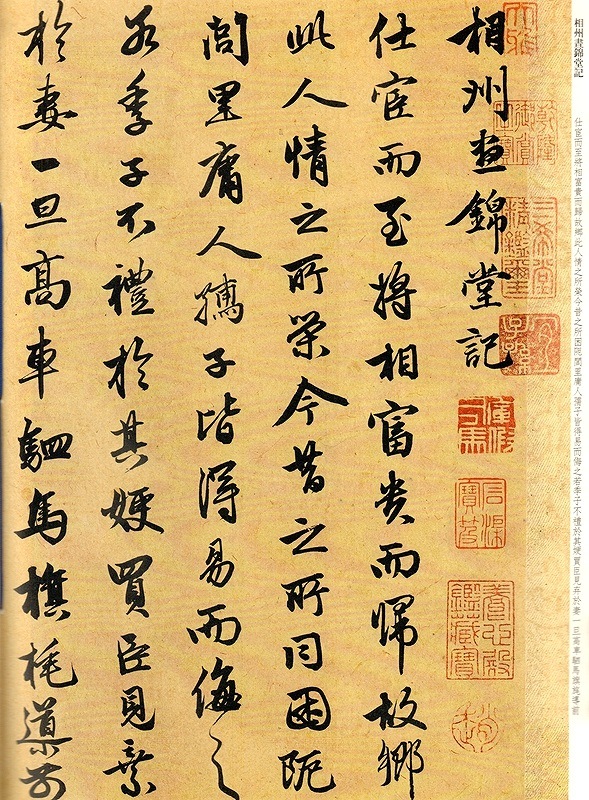 相州晝錦堂記
仕宦而至將相富貴而歸故鄉此人情之所榮今昔之所困阨閭里庸人孺子皆得易而侮之若季子不禮於其嫂買臣見弃於妻一旦高車駟馬旗旄導前
大雅
乾隆御賞之寶
三希堂精鑑璽
宜子孫
石渠寶笈
養心殿鑑藏寶
相州晝錦堂記
仕宦而至將相富貴而歸故鄉
此人情之所榮今昔之所同困阨
閭里庸人孺子皆得易而侮之
若季子不禮於其嫂買臣見棄
於妻一旦高車駟馬旗旄導前